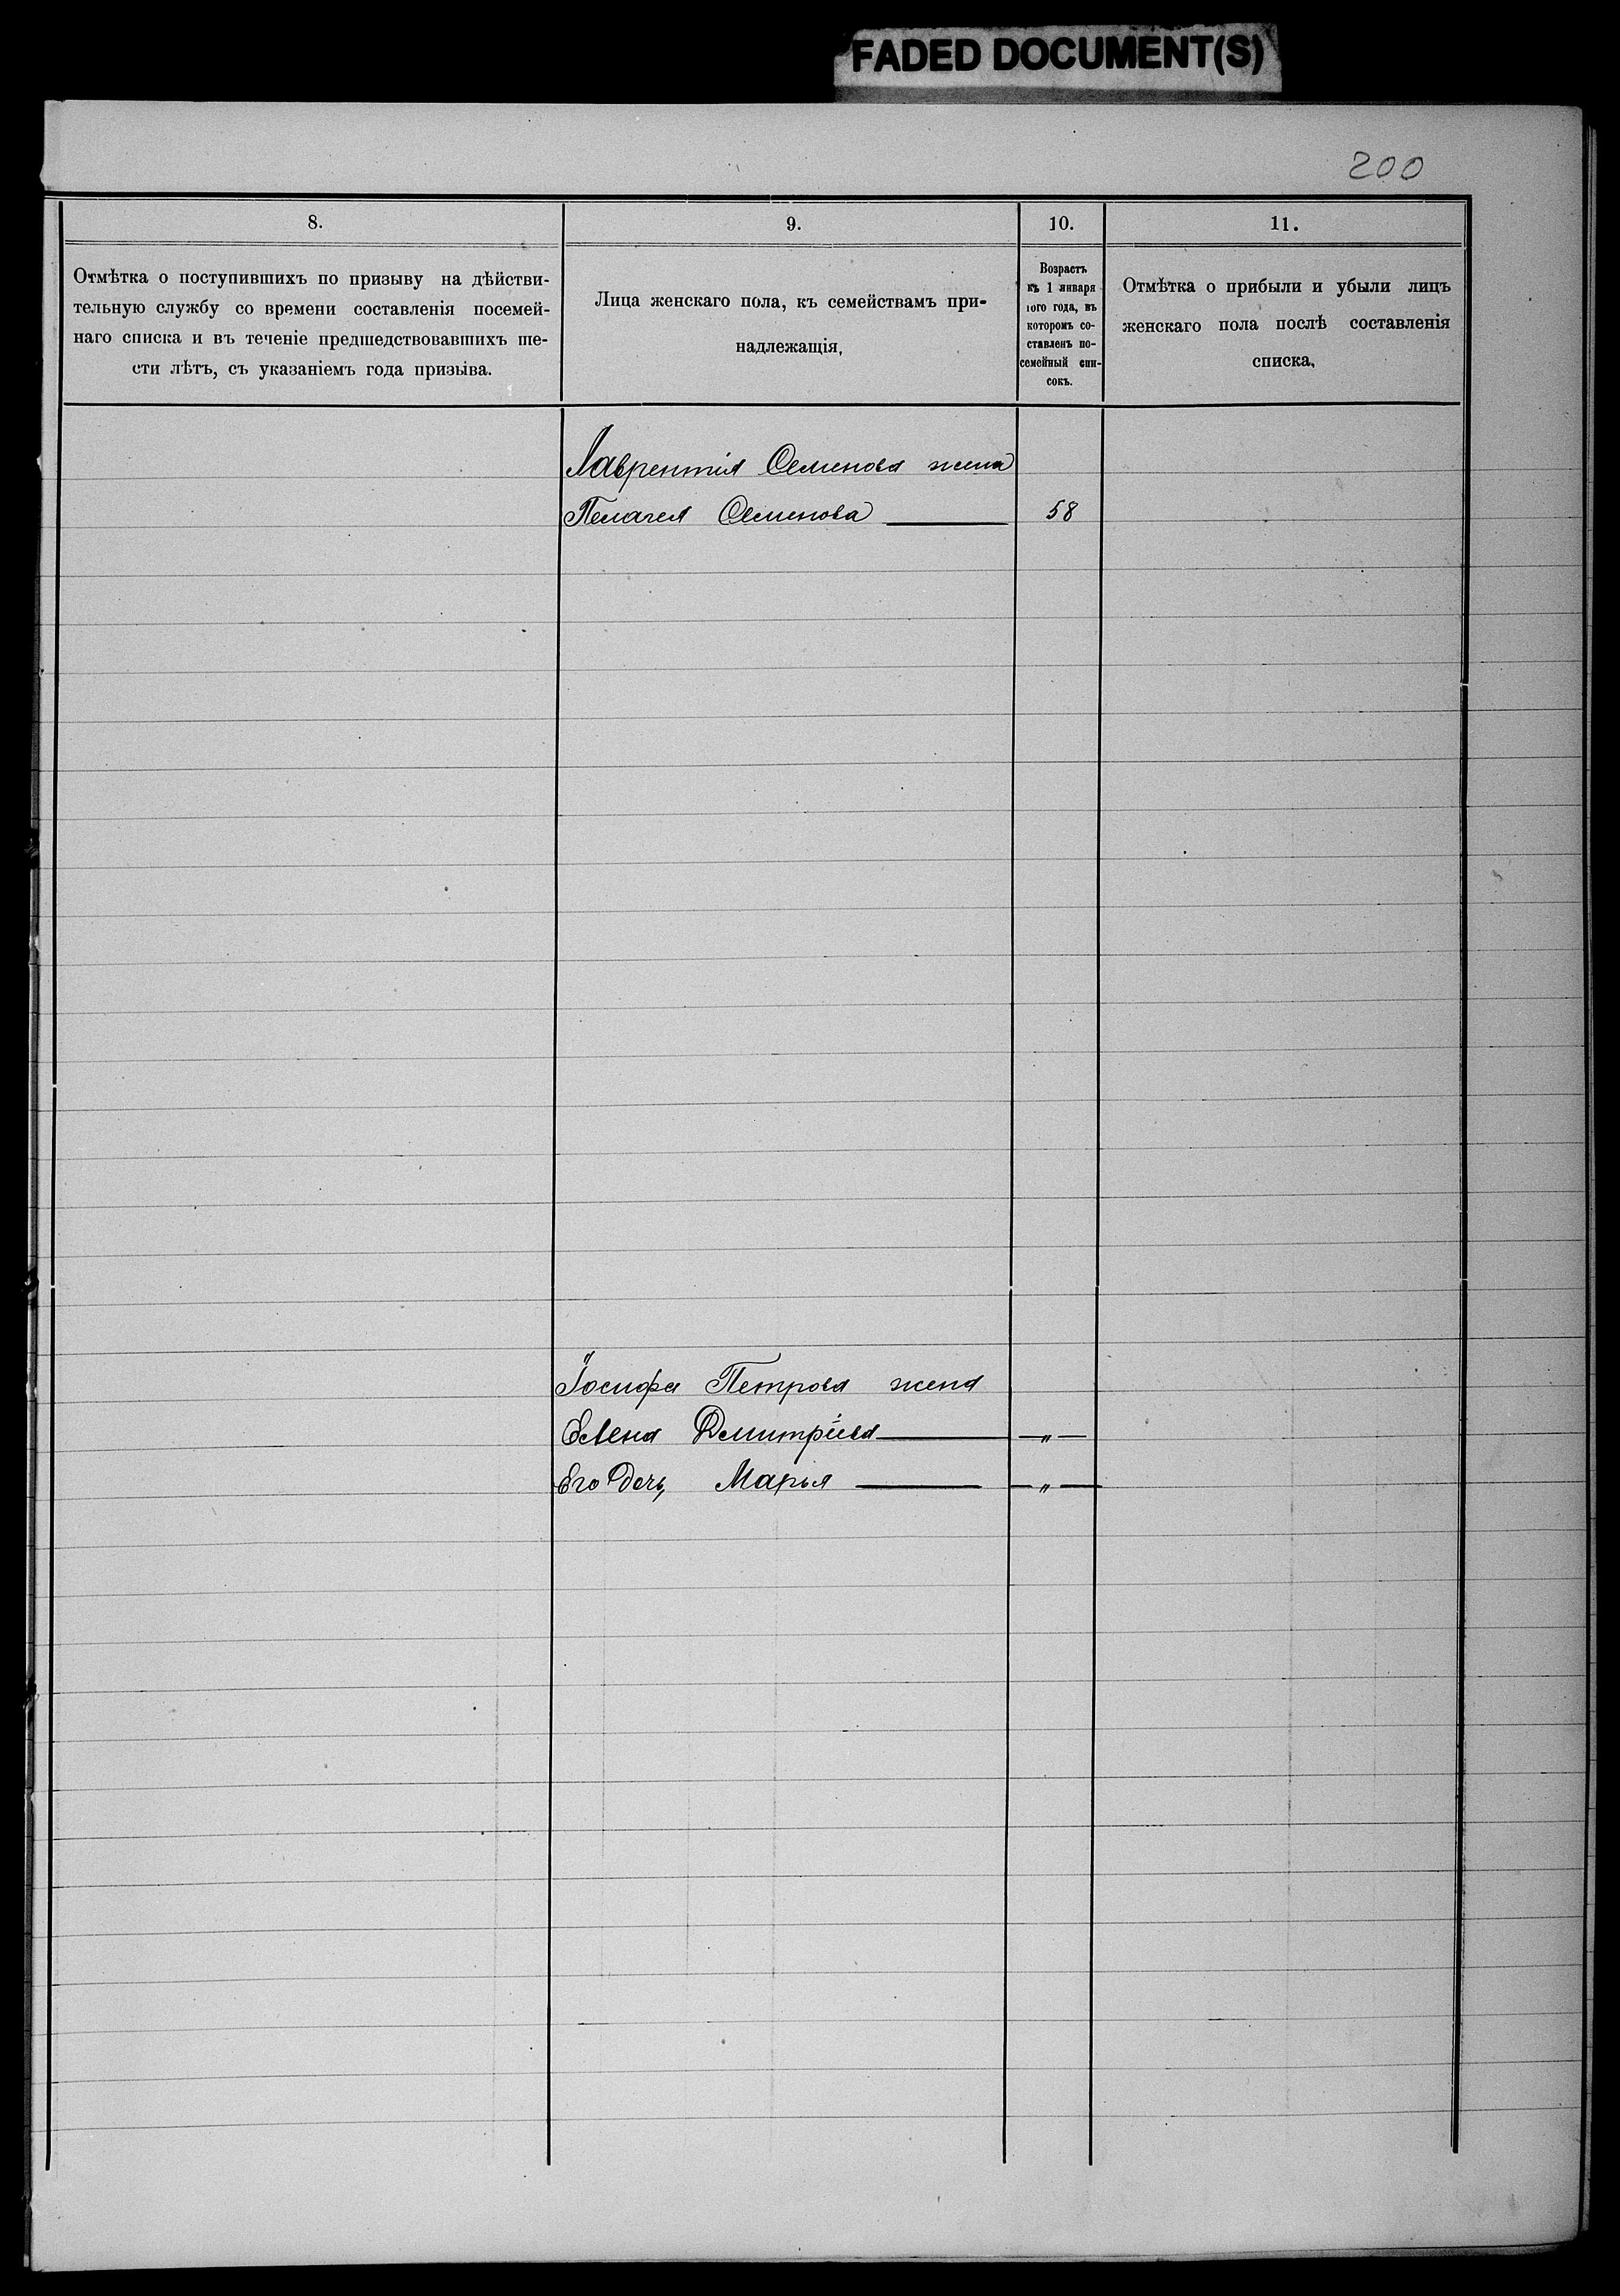 FADED DOCUMENT(S)
200
8.
9.
10.
11.
Отмѣтка о поступившихъ по призыву на дѣйстви-
тельную службу со времени составленія посемей-
наго списка и въ теченіе предшедствовавшихъ ше-
сти лѣтъ, съ указаніемъ года призыва.
Лица женскаго пола, къ семействамъ при-
надлежащія,
Возрастъ
къ 1 января
того года, въ
которомъ со-
ставленъ по-
семейный спи-
сокъ.
Отмѣтка о прибыли и убыли лицъ
женскаго пола послѣ составленія
списка.
Лаврентія Семенова жена
Пелагея Семенова — 58
Іосифа Петрова жена
Елена Дмитріева — „ —
Его дочь, Марья — „ —